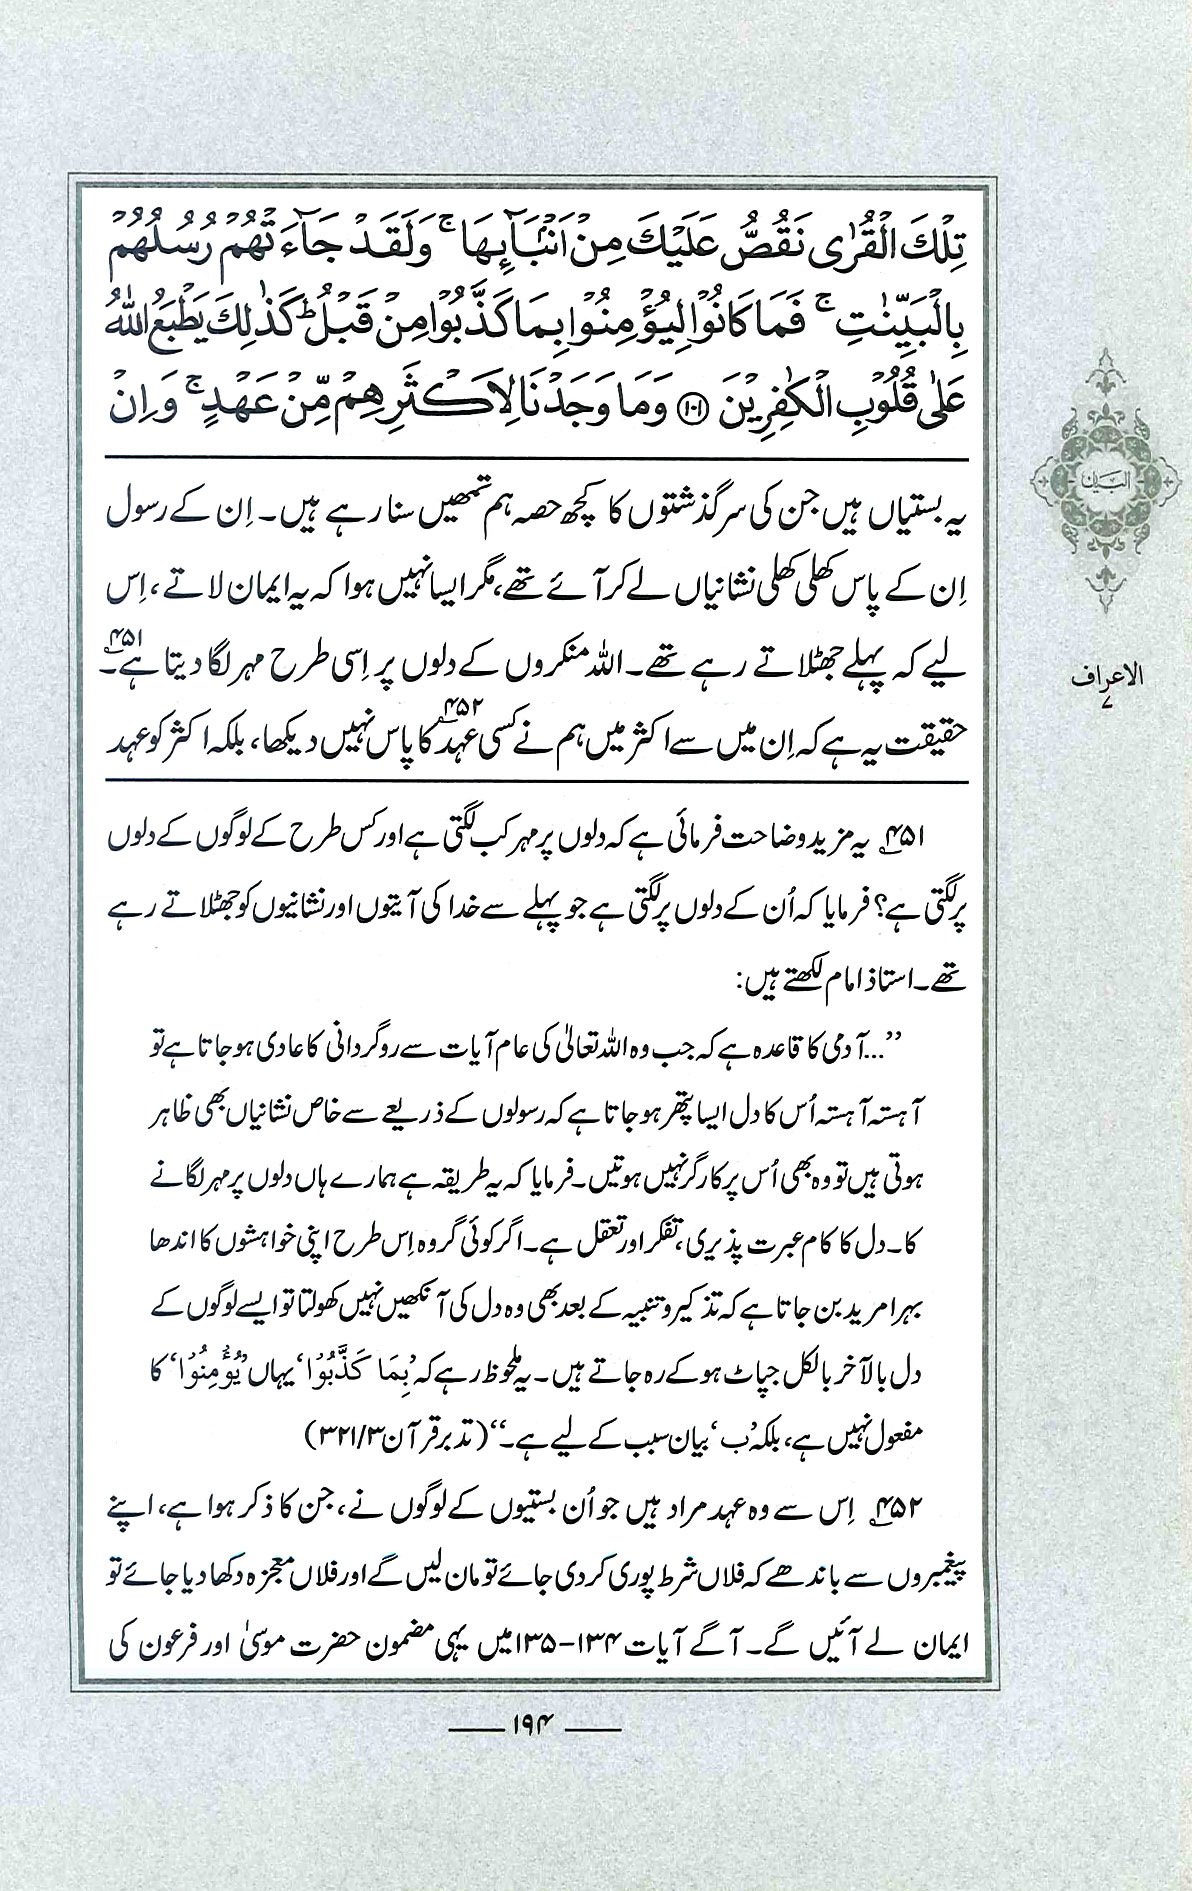 تِلْكَ الْقُرٰى نَقُصُّ عَلَيْكَ مِنْ اَنْۢبَآئِهَا ۚ وَلَقَدْ جَآءَتْهُمْ رُسُلُهُمْ
بِالْبَيِّنٰتِ ۚ فَمَا كَانُوْا لِيُؤْمِنُوْا بِمَا كَذَّبُوْا مِنْ قَبْلُ ؕ كَذٰلِكَ يَطْبَعُ اللّٰهُ
عَلٰى قُلُوْبِ الْكٰفِرِيْنَ ﴿١٠١﴾ وَمَا وَجَدْنَا لِاَكْثَرِهِمْ مِّنْ عَهْدٍ ۚ وَاِنْ
یہ بستیاں ہیں جن کی سرگذشتوں کا کچھ حصہ ہم تمھیں سنا رہے ہیں۔ اِن کے رسول
اِن کے پاس کھلی کھلی نشانیاں لے کر آئے تھے، مگر ایسا نہیں ہوا کہ یہ ایمان لاتے، اِس
لیے کہ پہلے جھٹلاتے رہے تھے۔ اللہ منکروں کے دلوں پر اِسی طرح مہر لگا دیتا ہے۔ ۴۵۱
حقیقت یہ ہے کہ اِن میں سے اکثر میں ہم نے کسی عہد ۴۵۲ کا پاس نہیں دیکھا، بلکہ اکثر کو عہد
البیان
الاعراف
۷
۴۵۱ یہ مزید وضاحت فرمائی ہے کہ دلوں پر مہر کب لگتی ہے اور کس طرح کے لوگوں کے دلوں
پر لگتی ہے؟ فرمایا کہ اُن کے دلوں پر لگتی ہے جو پہلے سے خدا کی آیتوں اور نشانیوں کو جھٹلاتے رہے
تھے۔ استاذ امام لکھتے ہیں:
’’...آدمی کا قاعدہ ہے کہ جب وہ اللہ تعالیٰ کی عام آیات سے روگردانی کا عادی ہو جاتا ہے تو
آہستہ آہستہ اُس کا دل ایسا پتھر ہو جاتا ہے کہ رسولوں کے ذریعے سے خاص نشانیاں بھی ظاہر
ہوتی ہیں تو وہ بھی اُس پر کارگر نہیں ہوتیں۔ فرمایا کہ یہ طریقہ ہے ہمارے ہاں دلوں پر مہر لگانے
کا۔ دل کا کام عبرت پذیری، تفکر اور تعقل ہے۔ اگر کوئی گروہ اِس طرح اپنی خواہشوں کا اندھا
بہرا مرید بن جاتا ہے کہ تذکیر و تنبیہ کے بعد بھی وہ دل کی آنکھیں نہیں کھولتا تو ایسے لوگوں کے
دل بالآخر بالکل چپاٹ ہو کے رہ جاتے ہیں۔ یہ ملحوظ رہے کہ ’بِمَا كَذَّبُوْا‘ یہاں ’يُؤْمِنُوْا‘ کا
مفعول نہیں ہے، بلکہ ’ب‘ بیان سبب کے لیے ہے۔‘‘ (تدبر قرآن ۳/۳۲۱)
۴۵۲ اِس سے وہ عہد مراد ہیں جو اُن بستیوں کے لوگوں نے، جن کا ذکر ہوا ہے، اپنے
پیغمبروں سے باندھے کہ فلاں شرط پوری کر دی جائے تو مان لیں گے اور فلاں معجزہ دکھا دیا جائے تو
ایمان لے آئیں گے۔ آگے آیات ۱۳۴-۱۳۵ میں یہی مضمون حضرت موسیٰ اور فرعون کی
۱۹۴